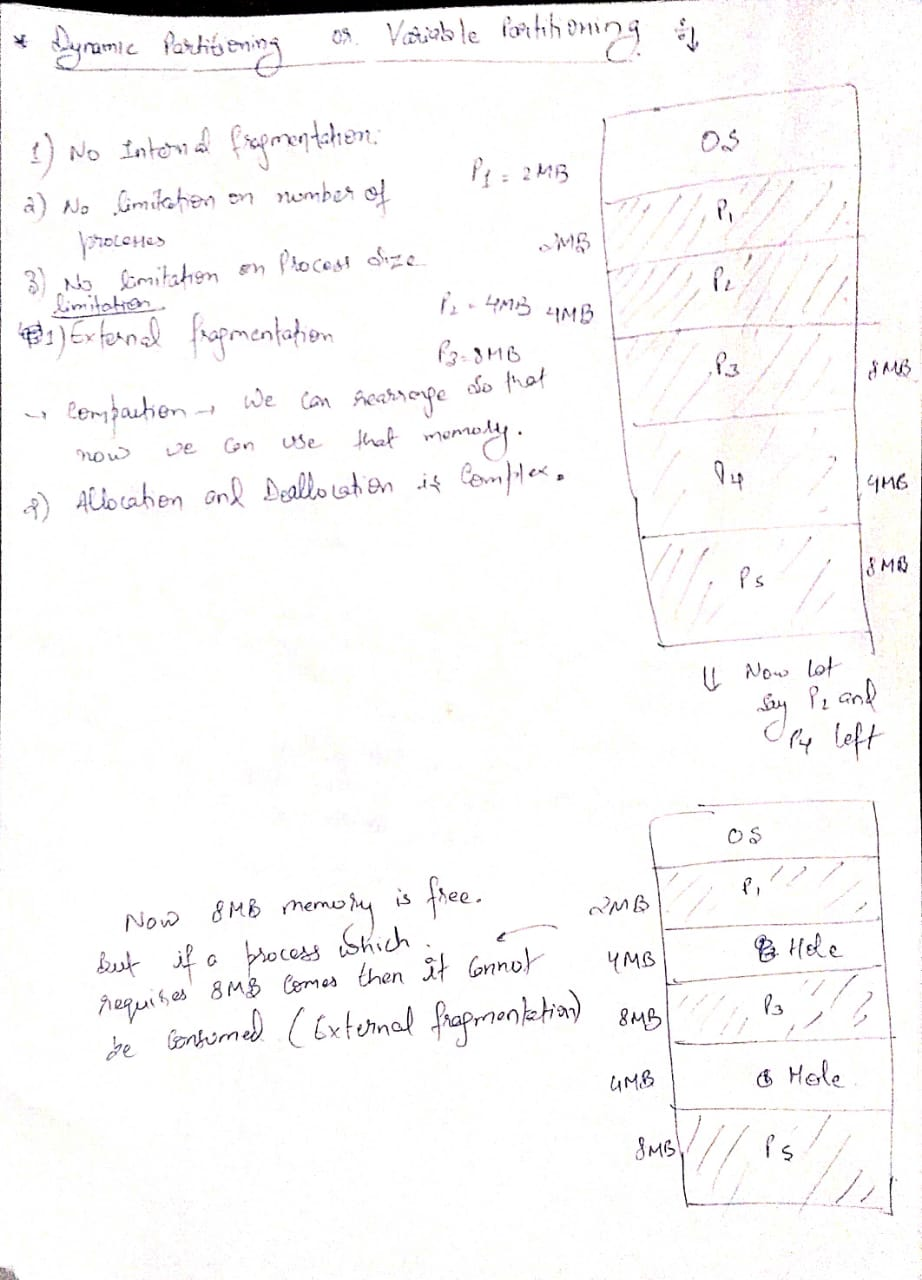 * Dynamic Partitioning or Variable Partitioning :↓
1) No Internal fragmentation.
2) No limitation on number of
processes
3) No limitation on Process size
limitation
1) External fragmentation
→ Compaction → We can rearrange so that
now we can use that memory.
2) Allocation and Deallocation is Complex.
P1 = 2MB
P2 = 4MB
P3 = 8MB
OS
2MB P1
4MB P2
P3 8MB
P4 4MB
P5 8MB
⇓ Now let
say P2 and
P4 left
Now 8MB memory is free.
But if a process which
requires 8MB comes then it cannot
be consumed (External fragmentation)
OS
2MB P1
4MB Hole
8MB P3
4MB Hole
8MB P5